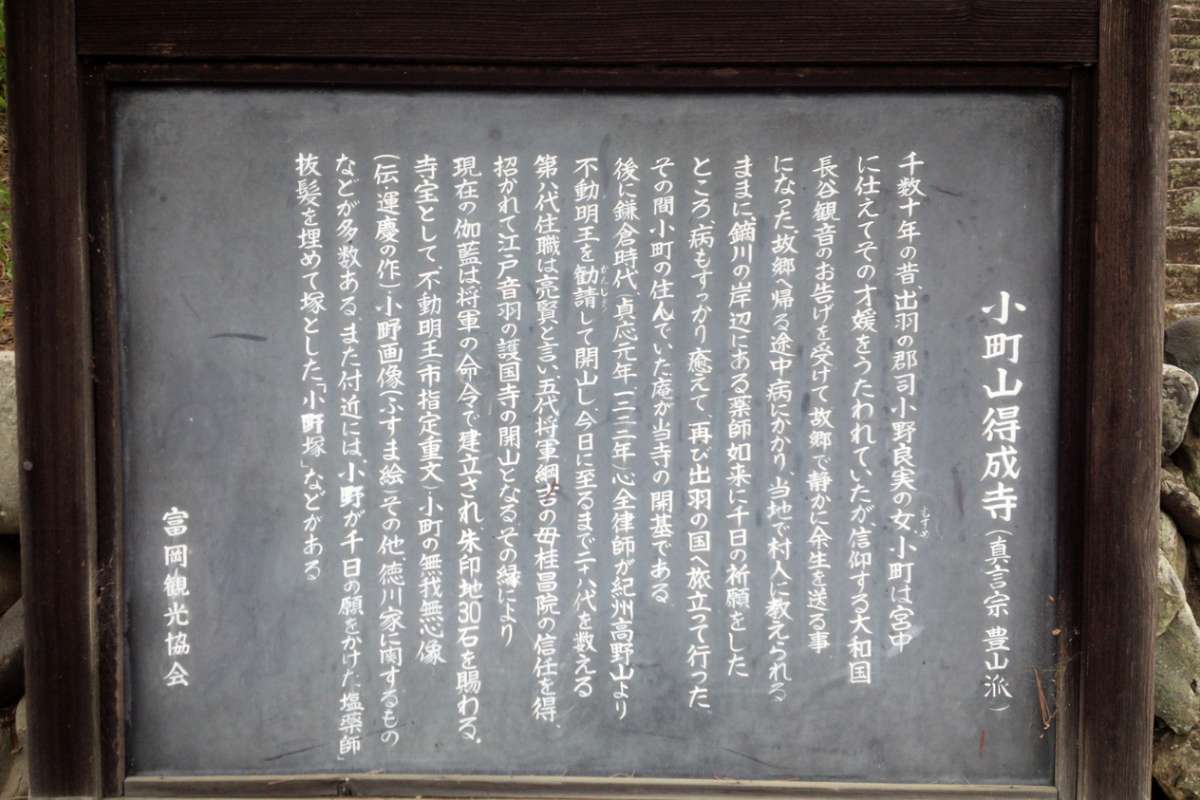 小町山得成寺(真言宗 豊山派)
千数十年の昔、出羽の郡司小野良実の女、小町は宮中
むすめ
に仕えてその才媛をうたわれていたが、信仰する大和国
長谷観音のお告げを受けて故郷で静かに余生を送る事
になった。故郷へ帰る途中病にかかり、当地で村人に教えられる
ままに、鏑川の岸辺にある薬師如来に千日の祈願をした
ところ、病もすっかり癒えて、再び出羽の国へ旅立って行った。
その間小町の住んでいた庵が当寺の開基である。
後に鎌倉時代、貞応元年、(一二二二年)心全律師が紀州高野山より
不動明王を勧請して開山し、今日に至るまで二十八代を数える
かんじょう
第八代住職は亮賢と言い、五代将軍綱吉の母桂昌院の信任を得、
招かれて江戸音羽の護国寺の開山となる。その縁により
現在の伽藍は将軍の命令で建立され、朱印地30石を賜わる。
寺宝として、不動明王(市指定重文)小町の無我無心像
(伝・運慶の作)小野画像(ふすま絵)その他、徳川家に関するもの
などが多数ある。また付近には、小野が千日の願をかけた「塩薬師」
抜髪を埋めて塚とした「小野塚」などがある
富岡観光協会